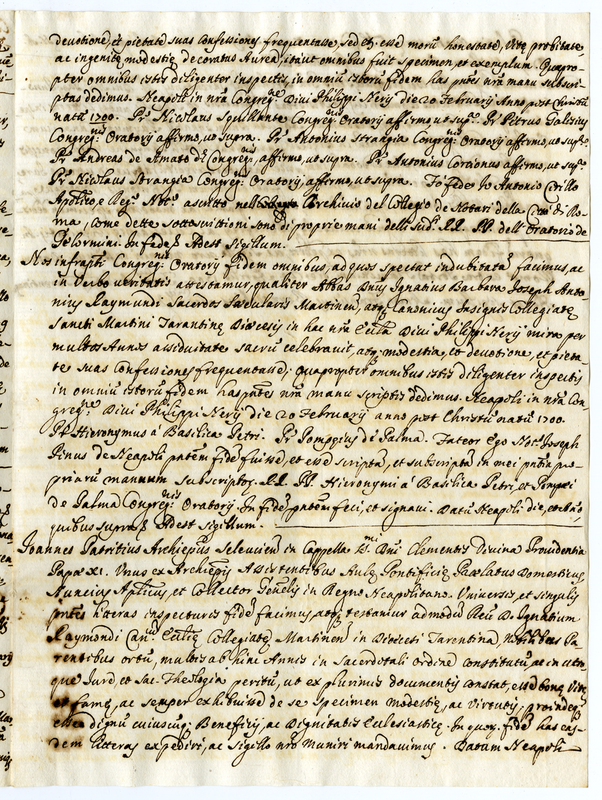 devotione, et pietate suas Confessiones frequentasse, sed et esse morũ honestate, vite probitate,
ac ingenite modestie decoratus Aurea, itaut omnibus fuit specimen, et exemplum. Quapro-
pter omnibus istis diligenter inspectis, in omniũ istorũ fidem has pntes nrã manu subscri-
ptas dedimus. Neapoli in nrã Congreg.ne Divi Philippi Nerij die 20 February Anno post Christũ
natũ 1700. Pr. Nicolaus Congreg.nis Oratorij affirmo, ut sup.a Pr. Petrus
Congreg.nis Oratorij affirmo, ut supra. Pr. Antonius Strangia Congreg.nis Oratorij affirmo, ut sup.a
Pr. Andreas de Amato d.e Congreg.nis, affirmo, ut supra. Pr. Antonius Corcionus affirmo, ut sup.a
Pr. Nicolaus Strangia Congreg.nis Oratorij, affirmo, ut supra. Fò fede Io Antonio Cirillo
Aplico, e Reg.o Not.o ascritto nell Archivio del Collegio de Notari della Città di Ro-
ma, come dette sottoscrittioni sono di proprie mani delli sud.i RR. PP. dell'Oratorio de
Gelormini. In fede &. Adest Sigillum.
Nos infrapti Congreg.nis Oratorij fidem omnibus, ad quos spectat indubitatã facimus, ac
in verbo veritatis attestamur, qualiter Abbas Dnus Ignatius Barbara Joseph Anto-
nius Raymundi Sacerdos Saecularis Martinen, atq Canonicus Insignis Collegiatę
Sancti Martini Tarantinę Diocesis in hac nrã Ecclã Divi Philippi Nerij mira per
multos Annos assiduitate sacrũ celebravit, atq modestia, et devotione, et pieta-
te suas Confessiones frequentasse; quapropter omnibus istis diligenter inspectis
in omniũ istorũ fidem has pntes nrã manu scriptas dedimus. Neapoli in nrã Con-
greg.ne Divi Philippi Nerij die 20 February anno post Christũ natũ 1700.
Pr. Hieronymus à Basilica Petri. Pr. Pompeius de Palma. Fateor Ego Not.s Joseph
Pinus de Neapoli pntem fidẽ fuisse, et esse scriptã, et subscriptã in mei pntia pro-
priarũ manuum subscript. RR. PP. Hieronymi à Basilica Petri, et Pompei
de Palma Congreg.nis Oratorij. In fidẽ pntem feci, et signavi. Datũ Neapoli die, et Anõ,
quibus supra &. Adest Sigillum.
Joannes Patritius Archiepus Seleucien in Cappella S.mi Dni Clementis Divina Providentia
Papæ XI. Unus ex Archiepis Assistentibus Aulę Pontificię Praelatus Domesticus,
Nuncius Aplicus, et Collector Gnalis in Regno Neapolitano. Universis, et singulis
pntes literas inspecturis fidẽ facimus, atq testamur admodũ Rev.dũ D. Ignatium
Raymondi Can.cũ Ecclię Collegiatę Martinen in Diocesi Tarentina, nobilibus Pa-
rentibus ortũ, multis ab hinc Annis in Sacerdotali ordine constitutũ, ac in utro-
que Jurẽ, et Sac. Theologia peritũ, ut ex plurimis documentis constat, esse bonę vitę
et famę, ac semper exhibuisse de se specimen modestię, ac virtutis, proindeq
esse dignũ cuiuscuq Beneficij, ac Dignitatis Ecclesiasticę. In quor. fidẽ has eas-
dem litteras expediri, ac Sigillo nrõ muniri mandavimus. Datum Neapoli